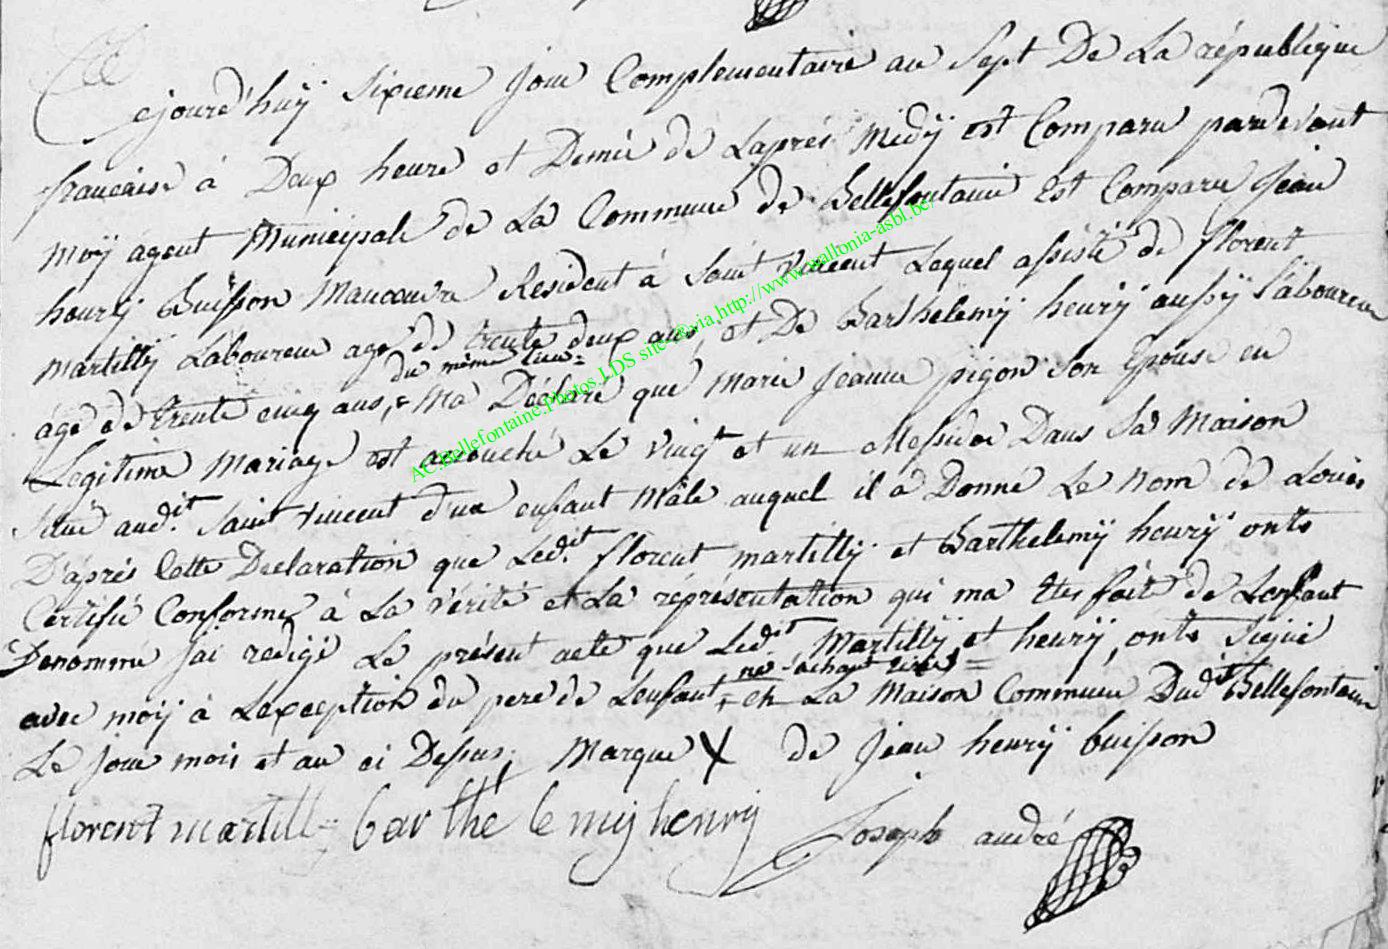 Cejourd'huÿ Sixieme Jour Complementaire an Sept De La république
francaise à Deux heure et Demie de Laprés Midÿ est Comparu pardevant
moÿ agent Municipale de La Commune de Bellefontaine Est Comparu Jean
henrÿ Buisson Manoeuvre Resident à Saint Vincent Lequel assisté de florent
martillÿ Laboureur agé de trente deux ans, et De Barthelemÿ henrÿ aussÿ Laboureur
du même lieu=
ágé de trente cinq ans, = Ma Déclaré que marie Jeanne pigon Son Epouse en
Legitime Mariage est accouché Le vingt et un Messidor Dans Sa Maison
Situé aud.it Saint Vincent d'un enfant Mâle auquel il à Donné Le Nom de Louis
D'aprés Cette Declaration que Led.it florent martillÿ et Barthelemÿ henrÿ onts
Certifié Conforme à La Vérité et La représentation qui ma Etes faite de Lenfant
Denommé J'ai redigé Le présent acte que Ledit Martillÿ, et henrÿ, onts Signé
né Sachant =
avec moÿ à Lexception du pere de Lenfant, = en La Maison Commune Dudit Bellefontaine
Le Jour mois et an ci Dessus, Marque X de Jean henrÿ buisson
florent martill barthelemij henrij Joseph andré
AC.Bellefontaine.Photos.LDS site via http://www.wallonia-asbl.be/